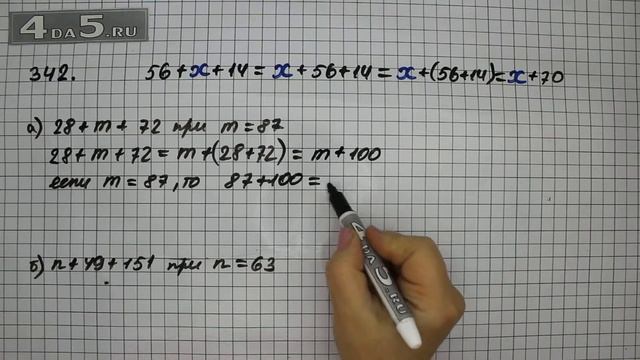 4DA5.RU
342. 56 + x + 14 = x + 56 + 14 = x + (56 + 14) = x + 70
а) 28 + m + 72 при m = 87
28 + m + 72 = m + (28 + 72) = m + 100
если m = 87, то 87 + 100 =
б) n + 49 + 151 при n = 63
4DA5.RU